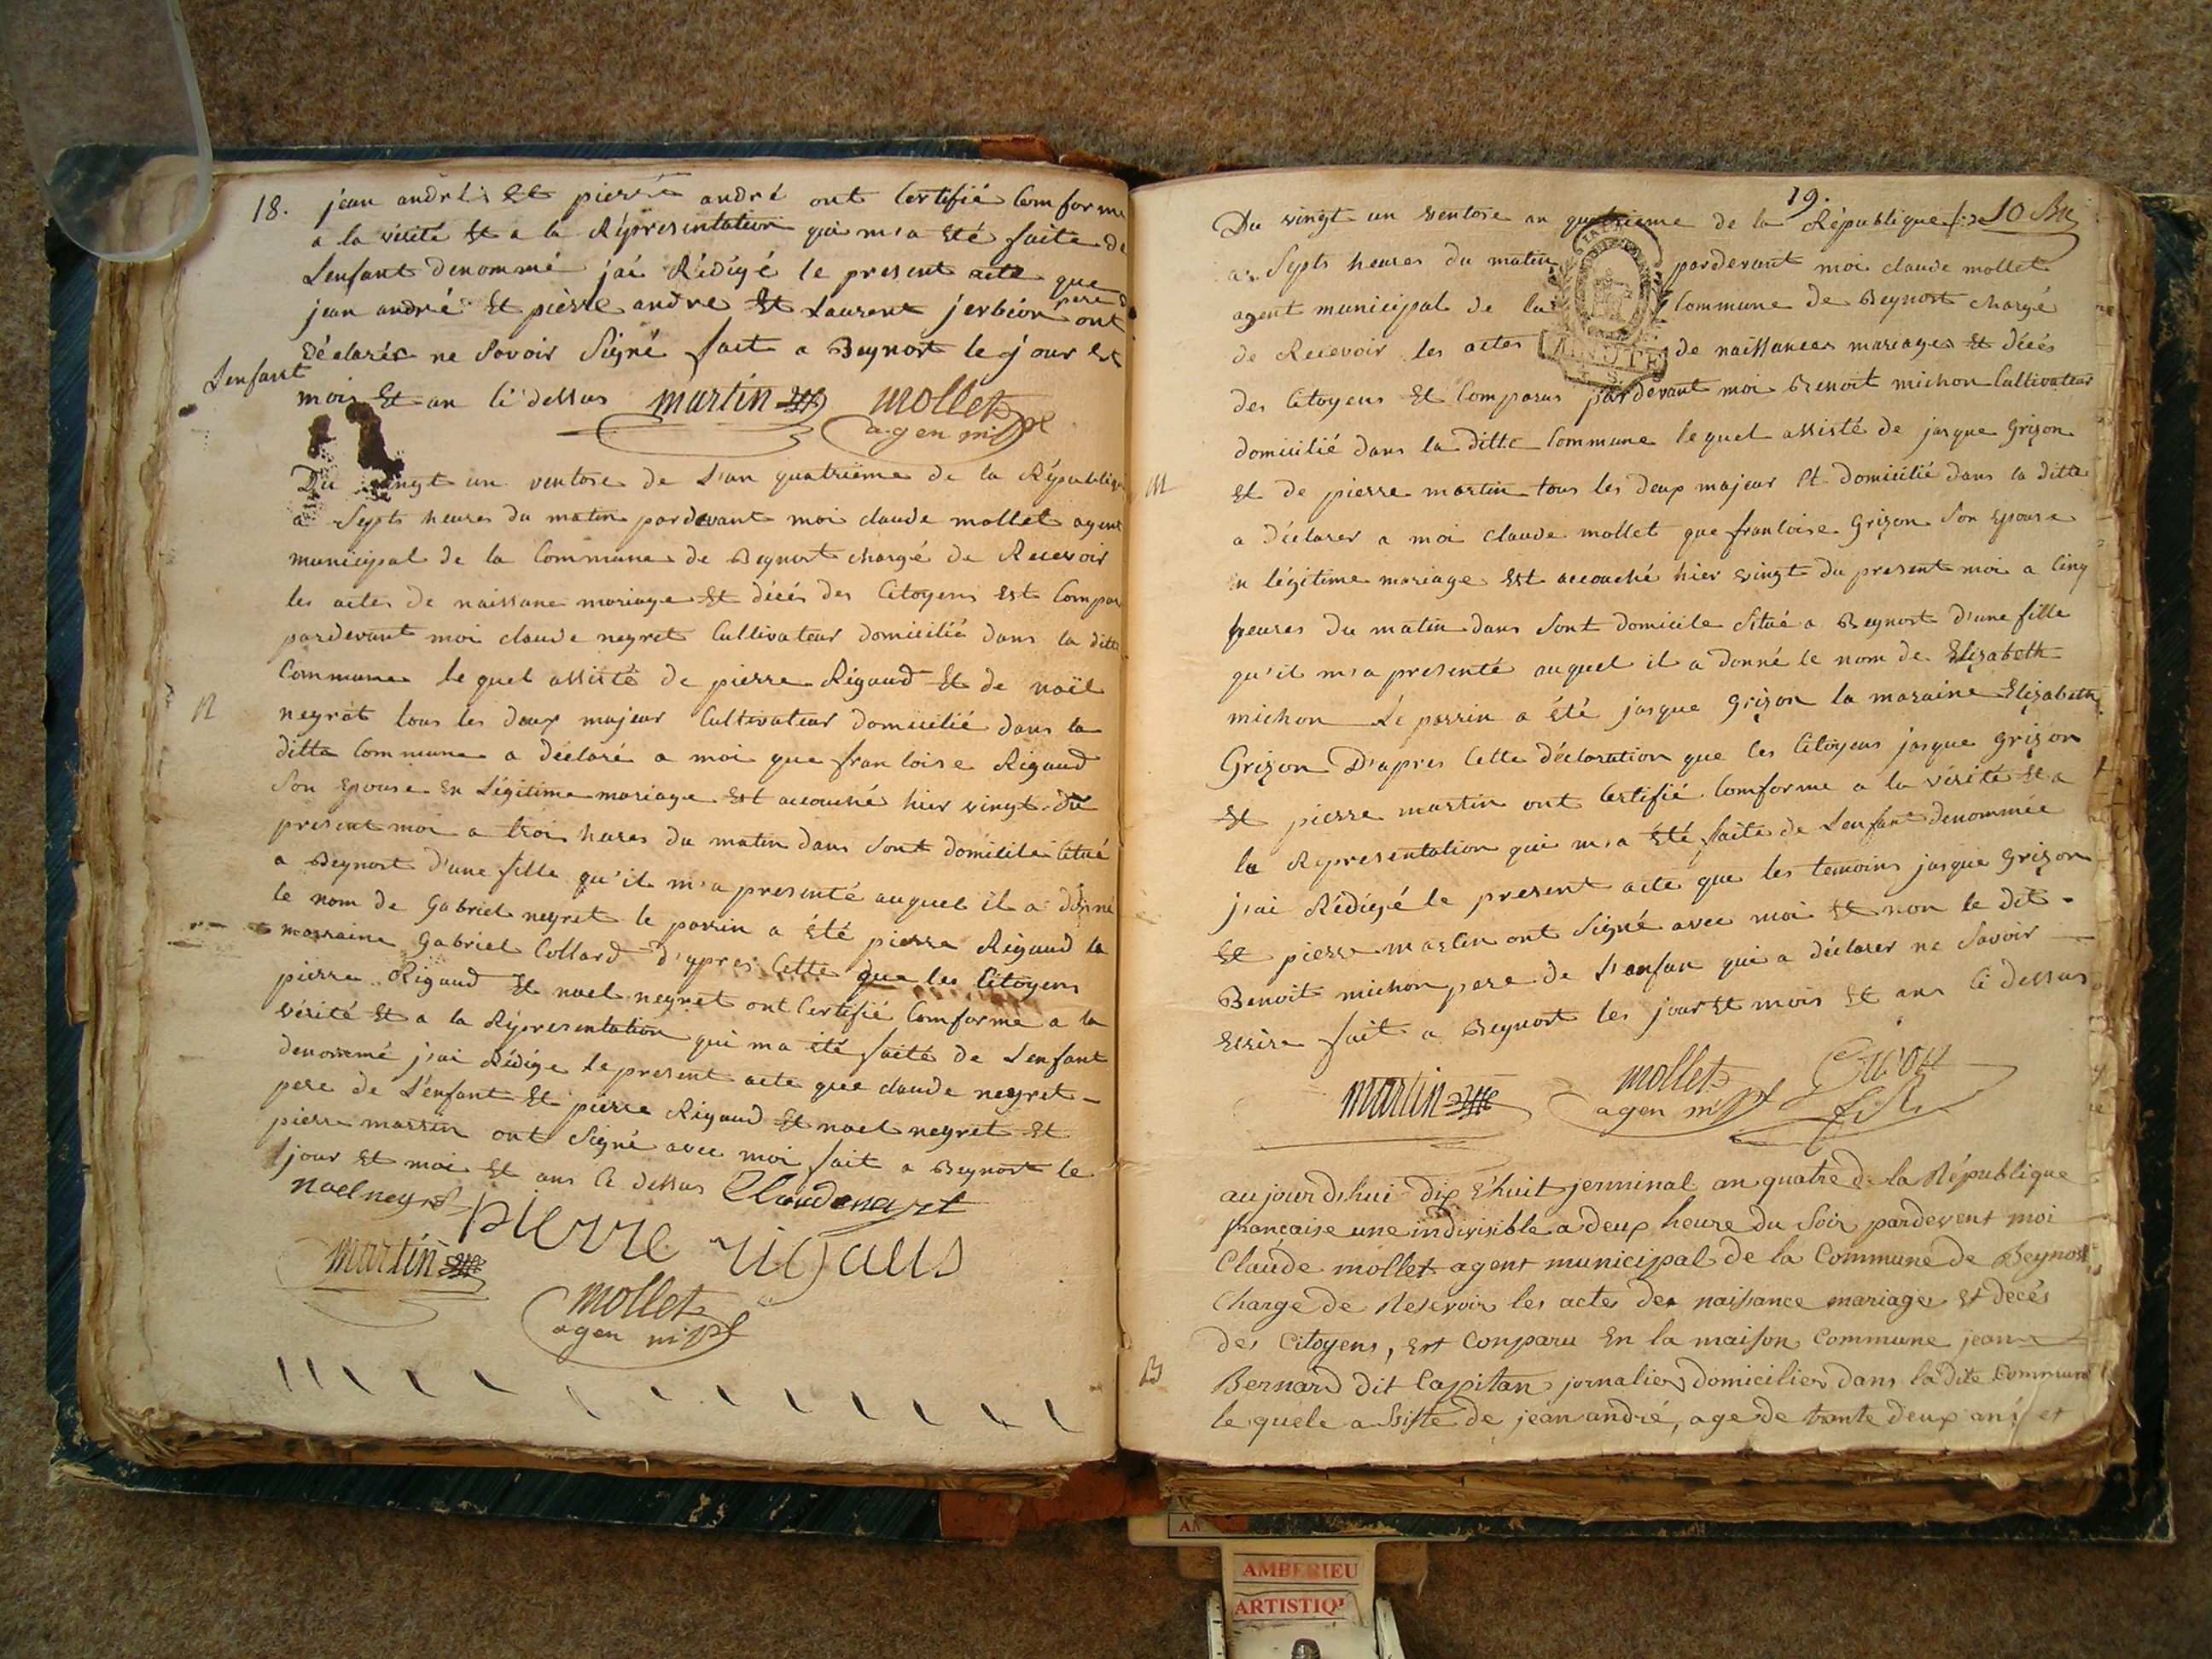 18.
jean andré Et pierre andré ont Certifié Comforme
a la vérité Et a la Réprésentation qui m'a Eté faite de
Lenfant denommé jai Rédigé le present acte que
jean andré Et pièrre andre Et Laurent jerbion pere de
Lenfant
ont
Déclarés ne Savoir Signé fait a Beynost le jour Et
mois Et an Ci dessus martin mollet
agen mpl
Du vingt un ventose de L'an quatrieme de la République
a Septs heures du matin pardevant moi claude mollet agent
municipal de la Commune de Beynost chargé de Recevoir
les actes de naissance mariage Et décés des Citoyens Est Comparu
pardevant moi claude neyret Cultivateur domicilié dans la ditte
Commune lequel assisté de pierre Rigaud Et de noël
N
neyrèt tous les deux majeur Cultivateur domicilié dans la
ditte Commune a déclaré a moi que francoise Rigaud
Son Epouse En Légitime mariage Est accouché hier vingt du
present moi a troi hures du matin dans Sont domicile Citué
a Beynost d'une fille qu'il m'a presenté auquel il a donné
le nom de Gabriel neyret le parrin a été pierre Rigaud la
marraine Gabriel Collard d'apres Cette que les Citoyens
pierre Rigaud Et noel neyret ont Certifié Comforme a la
vérité Et a la Répresentation qui ma été faite de Lenfant
denommé j'ai Rédige le present acte que claude neyret
pere de L'enfant Et pierre Rigaud Et noel neyret Et
pierre martin ont Signé avec moi fait a Beynost le
jour Et moi Et ans Ci dessus Claude neyret
noel neyret pierre rigaud
martin
mollet
agen mpl
19.
Du vingt un ventose an quatrieme de la République
a Septs heures du matin pardevant moi claude mollet
agent municipal de la Commune de Beynost chargé
de Recevoir les actes de naissances mariages Et décés
des Citoyens Et Comparus pardevant moi Benoit michon Cultivateur
domicilié dans la ditte Commune lequel assisté de jasque Grizon
M
Et de pierre martin tous les deux majeur Et domicilié dans la ditte
a déclarer a moi claude mollet que francoise Grizon Son Epouse
En légitime mariage Est accouché hier vingt du present moi a Cinq
heures du matin dans Sont domicile Situé a Beynost d'une fille
qu'il m'a presenté auquel il a donné le nom de Elizabeth
michon Le parrin a été jasque Grizon la maraine Elizabeth
Grizon D'apres Cette déclaration que les Citoyens jasque Grizon
Et pierre martin ont Certifié Comforme a la vérité Et a
la Représentation qui m'a Eté faite de Lenfant denommée
j'ai Rédigé le present acte que les temoins jasque Grizon
Et pierre martin ont Signé avec moi Et non le dit
Benoit michon pere de L'anfan qui a déclarer ne Savoir
Ecrire fait a Beynost les jour Et mois Et ans Ci dessus
martin mollet
agen mpl
aujourdshui dix Shuit jerminal an quatre de la République
francaise une indivisible a deux heure du Soir pardevent moi
Claude mollet agent municipal de la Commune de Beynost
Charge de Resevoir les actes des naissance mariages Et decés
des Citoyens, Est Conparu En la maison Commune jean
B
Bernard dit Capitan jornalier domicilier dans la dite Commune
le quele assiste de jean andré, age de trante deux ans et
AMBERIEU
ARTISTIQ